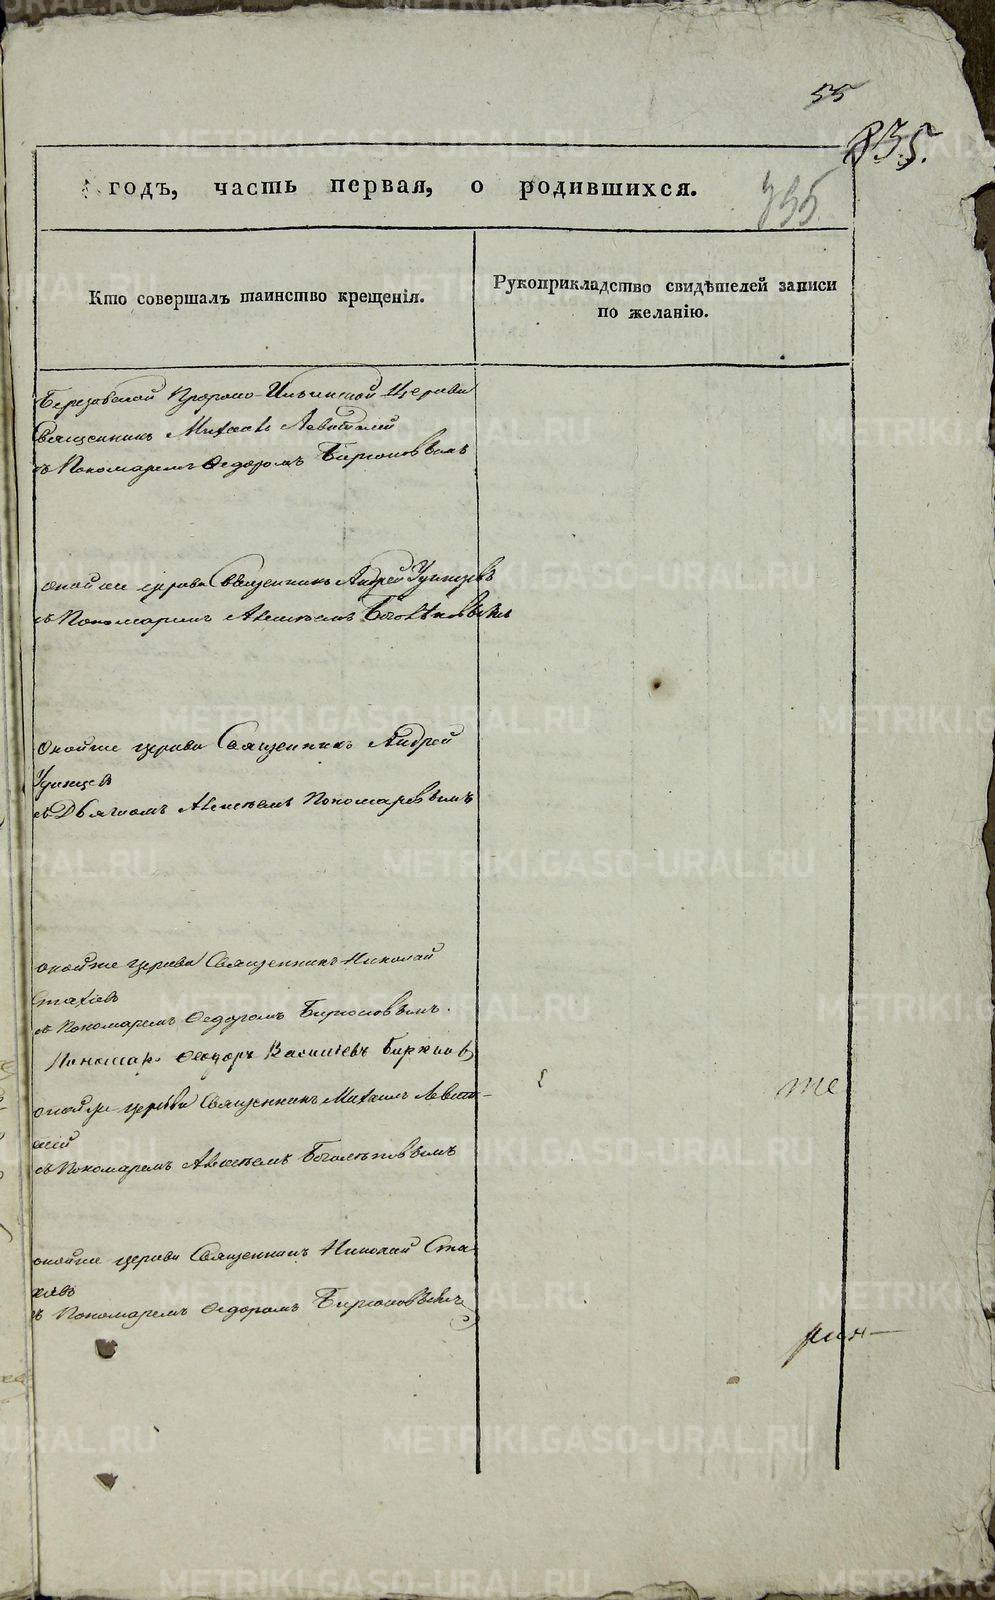 55
835.
годъ, часть первая, о родившихся.
Кто совершалъ таинство крещенія.
Рукоприкладство свидѣтелей записи
по желанію.
Березовской Пророко-Ильинской Церкви
Священникъ Михаилъ Левитскій
съ Пономаремъ Федоромъ Бирюковымъ
оной же церкви Священникъ Андрей Удинцевъ
съ Пономаремъ Алексѣемъ Боголѣповымъ
Оной же церкви Священникъ Андрей
Удинцев
съ Дьячкомъ Алексѣемъ Пономаревымъ
оной же церкви Священникъ Николай
Стахіевъ
съ Пономаремъ Федоромъ Бирюковымъ.
Пономарь Феодоръ Василіевъ Бирюков
оной же церкви Священникъ Михаилъ Левит-
скій
съ Пономаремъ Алексѣемъ Боголѣповымъ
те
оной же церкви Священникъ Николай Ста-
хіевъ
съ Пономаремъ Федоромъ Бирюковымъ
METRIKI.GASO-URAL.RU